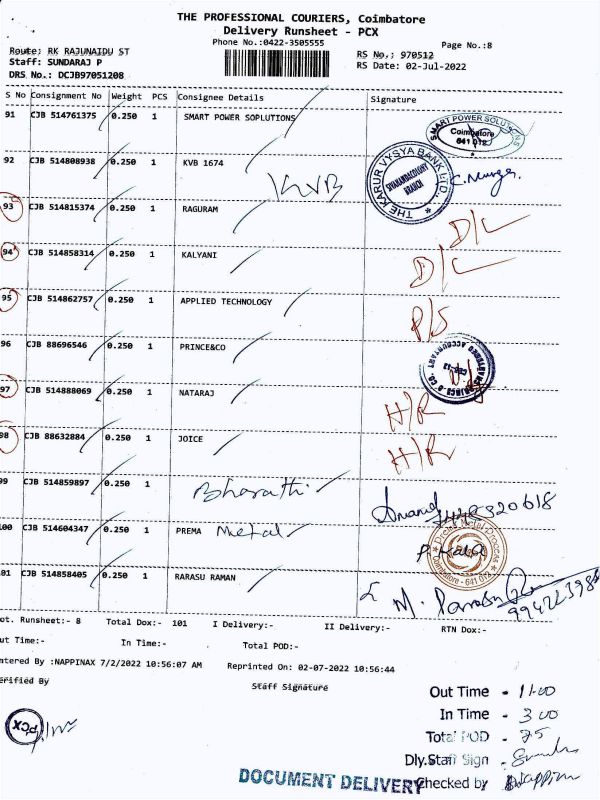 THE PROFESSIONAL COURIERS, Coimbatore
Delivery Runsheet - PCX
Phone No.:0422-3505555
Page No.:8
Route: RK RAJUNAIDU ST
RS No.: 970512
Staff: SUNDARAJ P
RS Date: 02-Jul-2022
DRS No.: DCJB97051208
S No Consignment No Weight PCS Consignee Details Signature
91 CJB 514761375 0.250 1 SMART POWER SOPLUTIONS
SMART POWER SOLUTIONS
Coimbatore
641 012
92 CJB 514808938 0.250 1 KVB 1674
KVB
THE KARUR VYSYA BANK LTD.
SIVANANDACOLONY
BRANCH
93 CJB 514815374 0.250 1 RAGURAM
D/L
94 CJB 514858314 0.250 1 KALYANI
D/L
95 CJB 514862757 0.250 1 APPLIED TECHNOLOGY
P/S
96 CJB 88696546 0.250 1 PRINCE&CO
97 CJB 514888069 0.250 1 NATARAJ
H/R
98 CJB 88632884 0.250 1 JOICE
H/R
99 CJB 514859897 0.250 1 Bharathi
Anand
100 CJB 514604347 0.250 1 PREMA Metal
P. Kala
Coimbatore - 641 012
01 CJB 514858405 0.250 1 RARASU RAMAN
ot. Runsheet:- 8 Total Dox:- 101 I Delivery:- II Delivery:- RTN Dox:-
ut Time:- In Time:- Total POD:-
ntered By :NAPPINAX 7/2/2022 10:56:07 AM Reprinted On: 02-07-2022 10:56:44
erified By Staff Signature
Out Time - 11.00
In Time - 3 00
Total POD - 75
Dly.Staff Sign -
Checked by
PCX
DOCUMENT DELIVERY